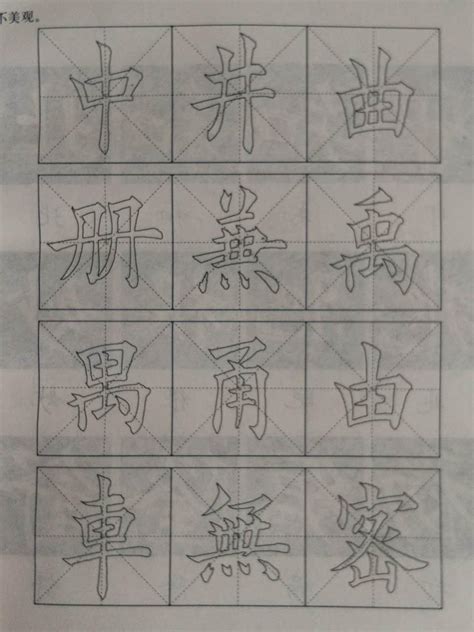 不美观。
中井曲
册無禹
禺甬由
車無密